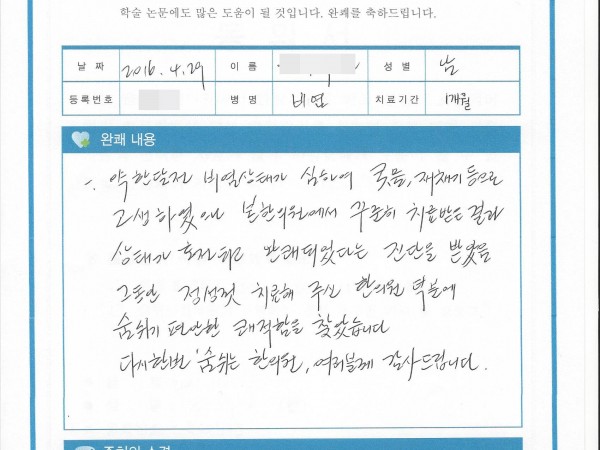 학술 논문에도 많은 도움이 될 것입니다. 완쾌를 축하드립니다.
날짜 2016.4.29 이름 성별 남
등록번호 병명 비염 치료기간 1개월
완쾌 내용
-. 약 한달전 비염상태가 심하여 콧물, 재채기 등으로
고생하였으나 본한의원에서 꾸준히 치료받은 결과
상태가 호전되고 완쾌되었다는 진단을 받았음
그동안 정성껏 치료해 주신 한의원 덕분에
숨쉬기 편안한 쾌적함을 찾았습니다
다시한번 '숨쉬는 한의원, 여러분께 감사드립니다.